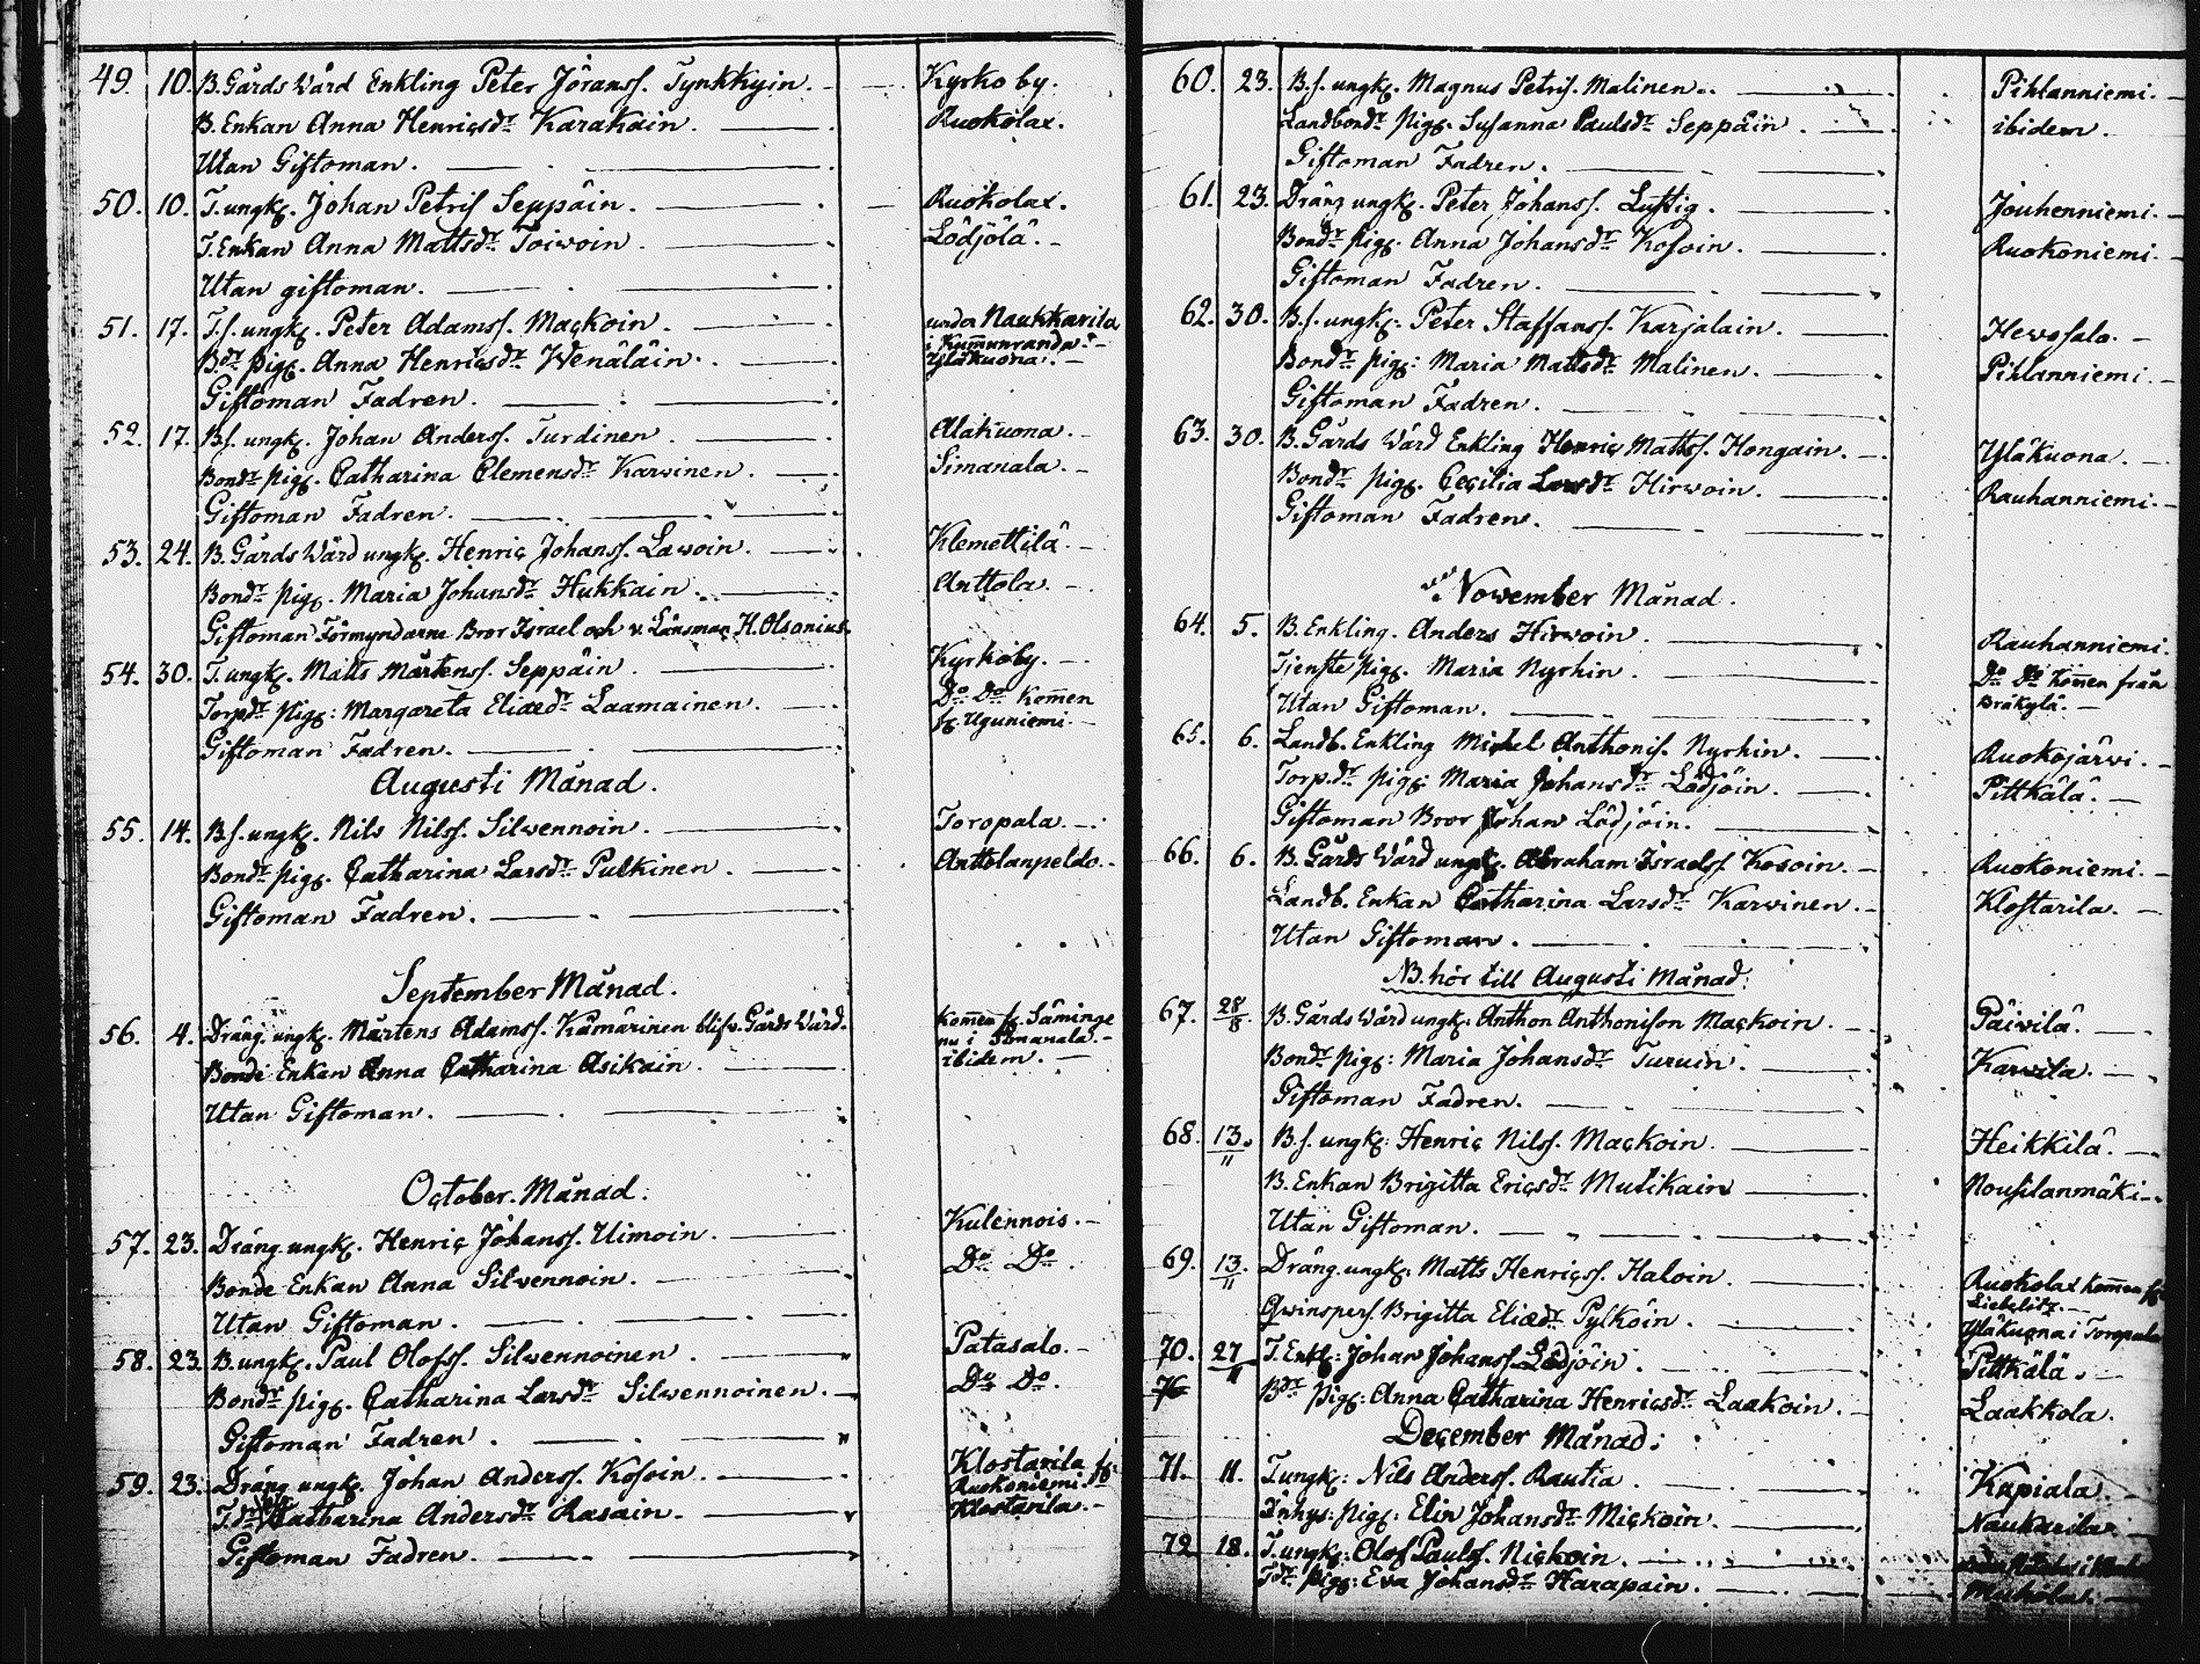 49. 10. B. Gårds Wärd Enkling Peter Jöranss. Tynkkyin. Kyrko by.
B. Enkan Anna Henricsdr Karakain. Ruokolax.
Utan Giftoman.
50. 10. T. ungk. Johan Petris Seppäin. Ruokolax.
T. Enkan Anna Mattsdr Toiwoin. Lödjölä.
Utan giftoman.
51. 17. T.s. ungk. Peter Adamss. Mackoin. under Naukkarila
i Kummunranda.
Bdr pig. Anna Henricsdr Wenäläin. Yläkuona.
Giftoman Fadren.
52. 17. B.s. ungk. Johan Anderss. Turdinen. Alakuona.
Bondr pig. Catharina Clemensdr Karvinen. Simanala.
Giftoman Fadren.
53. 24. B. Gårds Wärd ungk. Henric Johanss. Lawoin. Klemettilä.
Bondr pig. Maria Johansdr Hukkain. Anttola.
Giftoman Förmyndarne Bror Israel och v. Länsman H. Olsonius.
54. 30. T. ungk. Matts Mårtenss. Seppäin. Kyrkoby.
Torpdr pig: Margareta Eliædr Laamainen. Do Do Kommen
fr. Uguniemi.
Giftoman Fadren.
Augusti Månad.
55. 14. B.s. ungk. Nils Nilss. Silwennoin. Toropala.
Bondr pig. Catharina Larsdr Pulkinen. Anttolanpeldo.
Giftoman Fadren.
September Månad.
56. 4. Dräng. ungk. Mårtens Adamss. Kämärinen blifv. Gårds Wärd. Kommen fr. Säminge
nu i Simanala.
Bonde Enkan Anna Catharina Asikain. ibidem.
Utan Giftoman.
October Månad.
57. 23. Dräng ungk. Henric Johanss. Uimoin. Kulennois.
Bonde Enkan Anna Silwennoin. Do Do.
Utan Giftoman.
58. 23. B. ungk. Paul Olofss. Silwennoinen. Patasalo.
Bondr pig. Catharina Larsdr Silwennoinen. Do Do.
Giftoman Fadren.
59. 23. Dräng ungk. Johan Anderss. Kosoin. Klostarila fr.
Ruokoniemi.
T.dr Catharina Andersdr Rasain. Klostarila.
Giftoman Fadren.
60. 23. B.s. ungk. Magnus Petris. Malinen. Pihlanniemi.
Landbondr pig. Susanna Paulsdr Seppäin. ibidem.
Giftoman Fadren.
61. 23. Dräng ungk. Peter Johanss. Lustig. Jouhenniemi.
Bondr pig. Anna Johansdr Kosoin. Ruokoniemi.
Giftoman Fadren.
62. 30. B.s. ungk. Peter Staffanss. Karjalain. Hevosalo.
Bondr pig: Maria Mattsdr Malinen. Pihlanniemi.
Giftoman Fadren.
63. 30. B. Gårds Wärd Enkling Henric Mattss. Hongain. Yläkuona.
Bondr pig. Cecilia Larsdr Hirwoin. Rauhanniemi.
Giftoman Fadren.
November Månad.
64. 5. B. Enkling. Anders Hirwoin. Rauhanniemi.
Tjenste pig. Maria Nyrhin. Do Do Kommen från
Bräkylä.
Utan Giftoman.
65. 6. Landb. Enkling Michel Anthonis. Nyrhin. Ruokojärvi.
Torp.dr pig: Maria Johansdr Lödjöin. Pittkälä.
Giftoman Bror Johan Lödjöin.
66. 6. B. Gårds Wärd ungk. Abraham Israelss Kosoin. Ruokoniemi.
Landb. Enkan Catharina Larsdr Karvinen. Klostarila.
Utan Giftoman.
NB. hör till Augusti Månad.
67. 28/8. B. Gårds Wärd ungk: Anthon Anthonison Mackoin. Päivilä.
Bondr pig: Maria Johansdr Turuin. Karvila.
Giftoman Fadren.
68. 13/11 B.s. ungk: Henric Nilss. Mackoin. Heikkilä.
B. Enkan Brigitta Ericsdr Mutikain Nousilanmäki
Utan Giftoman.
69. 13/11 Dräng. ungk: Matts Henricss. Haloin. Ruokolax kommen fr
Liebelitz.
Qwinspers. Brigitta Eliædr Pylköin. Yläkuona i Toropala
70. 27/11 T. Enkl: Johan Johanss. Lödjöin. Pittkälä.
76 Bdr pig: Anna Catharina Henricsdr Laakoin. Laakkola.
December Månad:
71. 11. T ungk: Nils Anderss. Rautia. Kapiala.
Inhys: pig: Elin Johansdr Mickoin. Naukarila.
72 18. T. ungk: Olof Paulss. Nickoin.
Tdr. pig: Eva Johansdr Harapain.